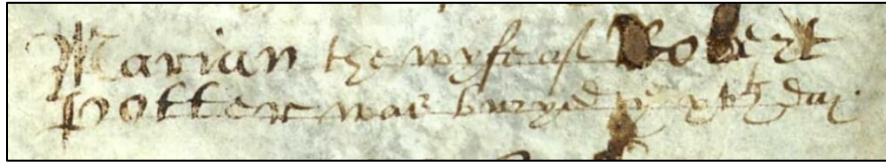 Marian the wyfe of Robert
Potter was buryed ye xth day.